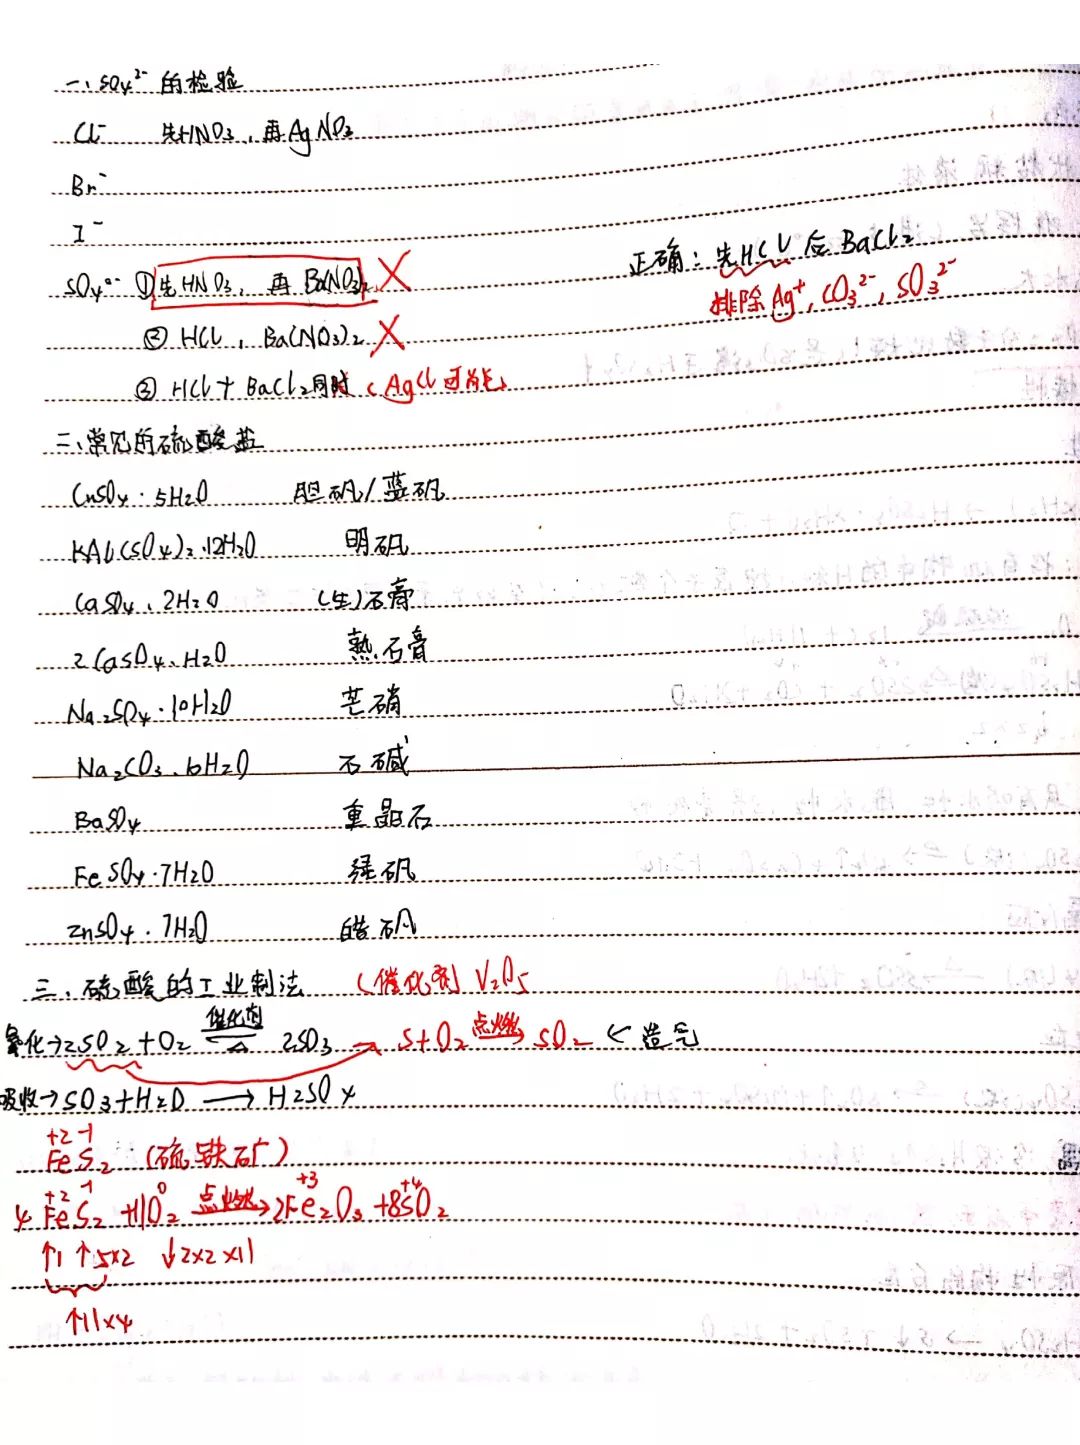 一、SO₄²⁻ 的检验
Cl⁻ 先HNO₃,再AgNO₃
Br⁻
I⁻
正确:先HCl 后 BaCl₂
排除Ag⁺, CO₃²⁻, SO₃²⁻
SO₄²⁻ ①先HNO₃,再 Ba(NO₃)₂ ×
② HCl,Ba(NO₃)₂ ×
③ HCl + BaCl₂同时 (AgCl 可能)
二、常见的硫酸盐
CuSO₄·5H₂O 胆矾/蓝矾
KAl(SO₄)₂·12H₂O 明矾
CaSO₄·2H₂O (生)石膏
2CaSO₄·H₂O 熟石膏
Na₂SO₄·10H₂O 芒硝
Na₂CO₃·10H₂O 石碱
BaSO₄ 重晶石
FeSO₄·7H₂O 绿矾
ZnSO₄·7H₂O 皓矾
三、硫酸的工业制法 (催化剂) V₂O₅
氧化→2SO₂+O₂ 催化剂 ⇌ △ 2SO₃ → S+O₂ 点燃 SO₂ < 造气
吸收→SO₃+H₂O ⟶ H₂SO₄
+2 -1
FeS₂ (硫铁矿)
+2 -1 0 +3 +4
4FeS₂ +11O₂ 点燃→ 2Fe₂O₃ +8SO₂
↑1 ↑5×2 ↓2×2×11
↑11×4